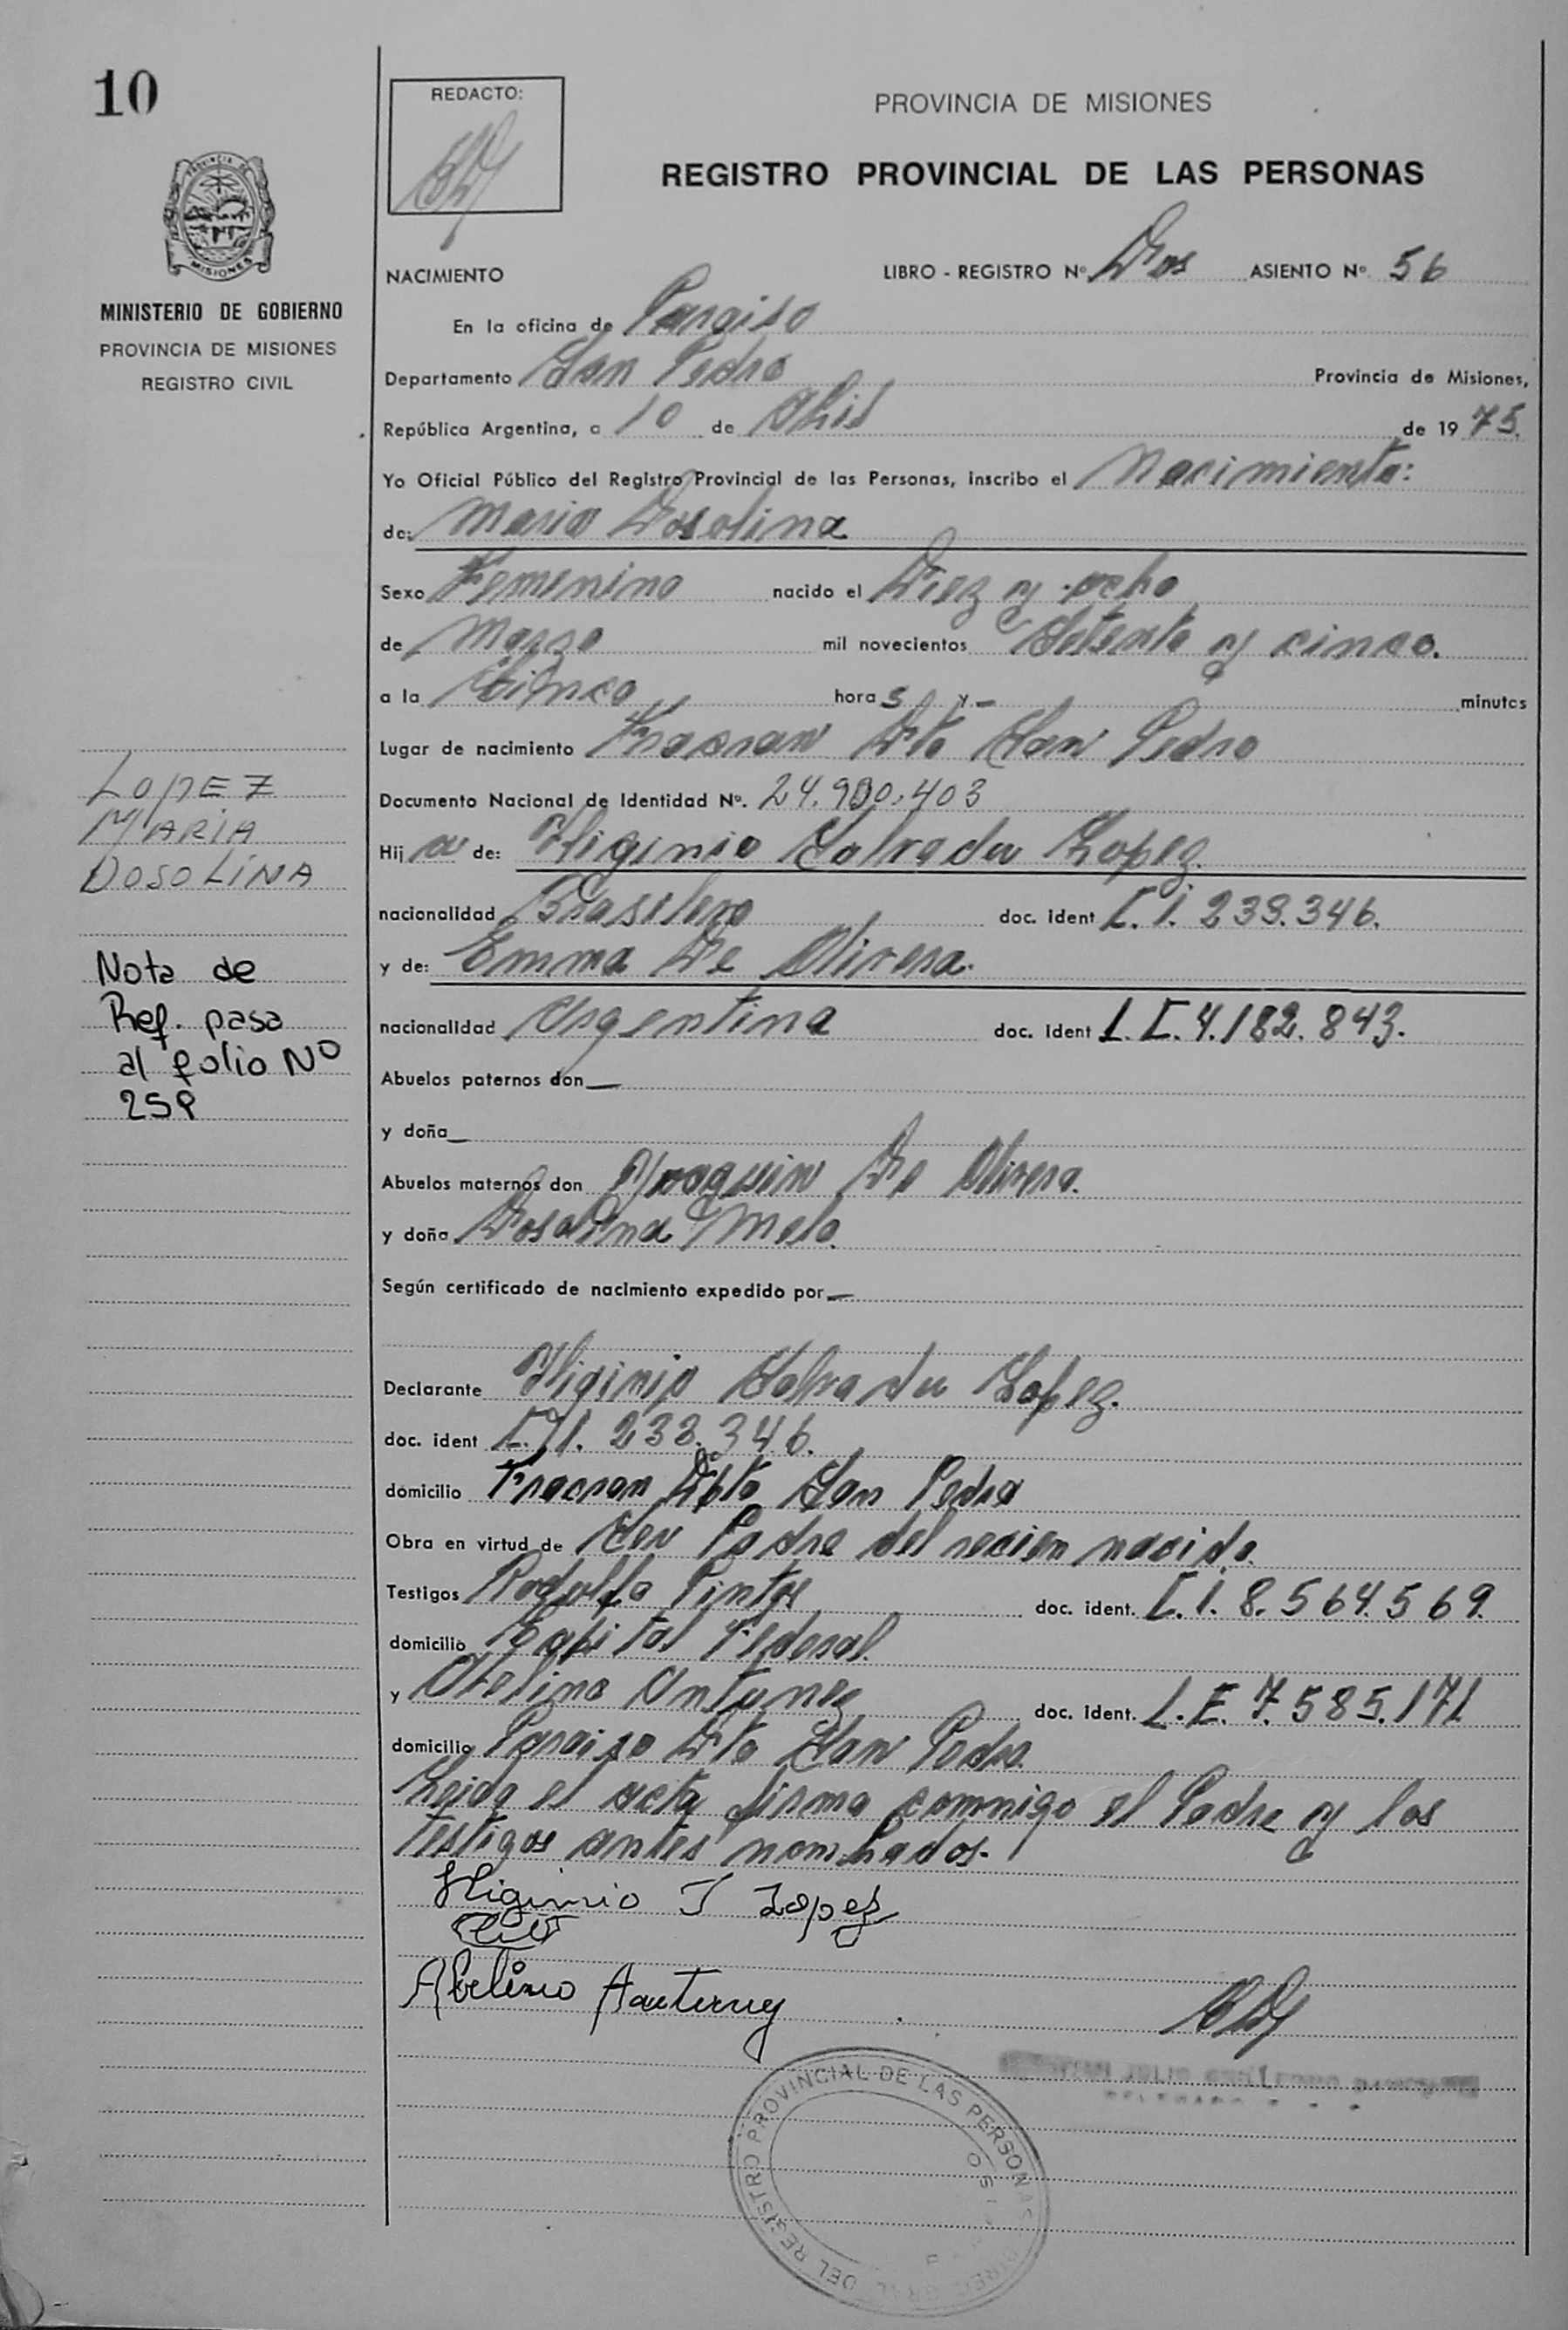 10
REDACTO:
PROVINCIA DE MISIONES
REGISTRO PROVINCIAL DE LAS PERSONAS
PROVINCIA DE
MISIONES
MINISTERIO DE GOBIERNO
PROVINCIA DE MISIONES
REGISTRO CIVIL
NACIMIENTO LIBRO - REGISTRO Nº Dos ASIENTO Nº 56
En la oficina de Paraiso
Departamento San Pedro Provincia de Misiones,
República Argentina, a 10 de Abril de 1975.
Yo Oficial Público del Registro Provincial de las Personas, inscribo el Nacimiento:
de: Maria Dosolina
Sexo Femenino nacido el Diez y ocho
de Marzo mil novecientos Setenta y cinco.
a la Cinco horas y — minutos
Lugar de nacimiento Fracran Dto San Pedro
Documento Nacional de Identidad Nº. 24.930.403
Hija de: Higinio Salvador Lopez.
nacionalidad Brasilero doc. ident C.I. 233.346.
y de: Emma De Olivera.
nacionalidad Argentina doc. ident L.C. 4.182.843.
Abuelos paternos don —
y doña —
Abuelos maternos don Joaquin De Olivera.
y doña Dosolina Melo.
Según certificado de nacimiento expedido por —
Declarante Higinio Salvador Lopez.
doc. ident C.I. 233.346.
domicilio Fracran Dpto San Pedro
Obra en virtud de Ser Padre del recien nacido.
Testigos Rodolfo Pintos doc. ident. C.I. 8.564.569.
domicilio Capital Federal.
y Avelino Antunez doc. ident. L.E. 7.585.171
domicilio Paraiso Dto San Pedro.
Leida el acta firma conmigo el Padre y los
testigos antes nombrados.
Higinio S Lopez
LOPEZ
MARIA
DOSOLINA
Nota de
Ref. pasa
al folio Nº
259
DEL REGISTRO PROVINCIAL DE LAS PERSONAS